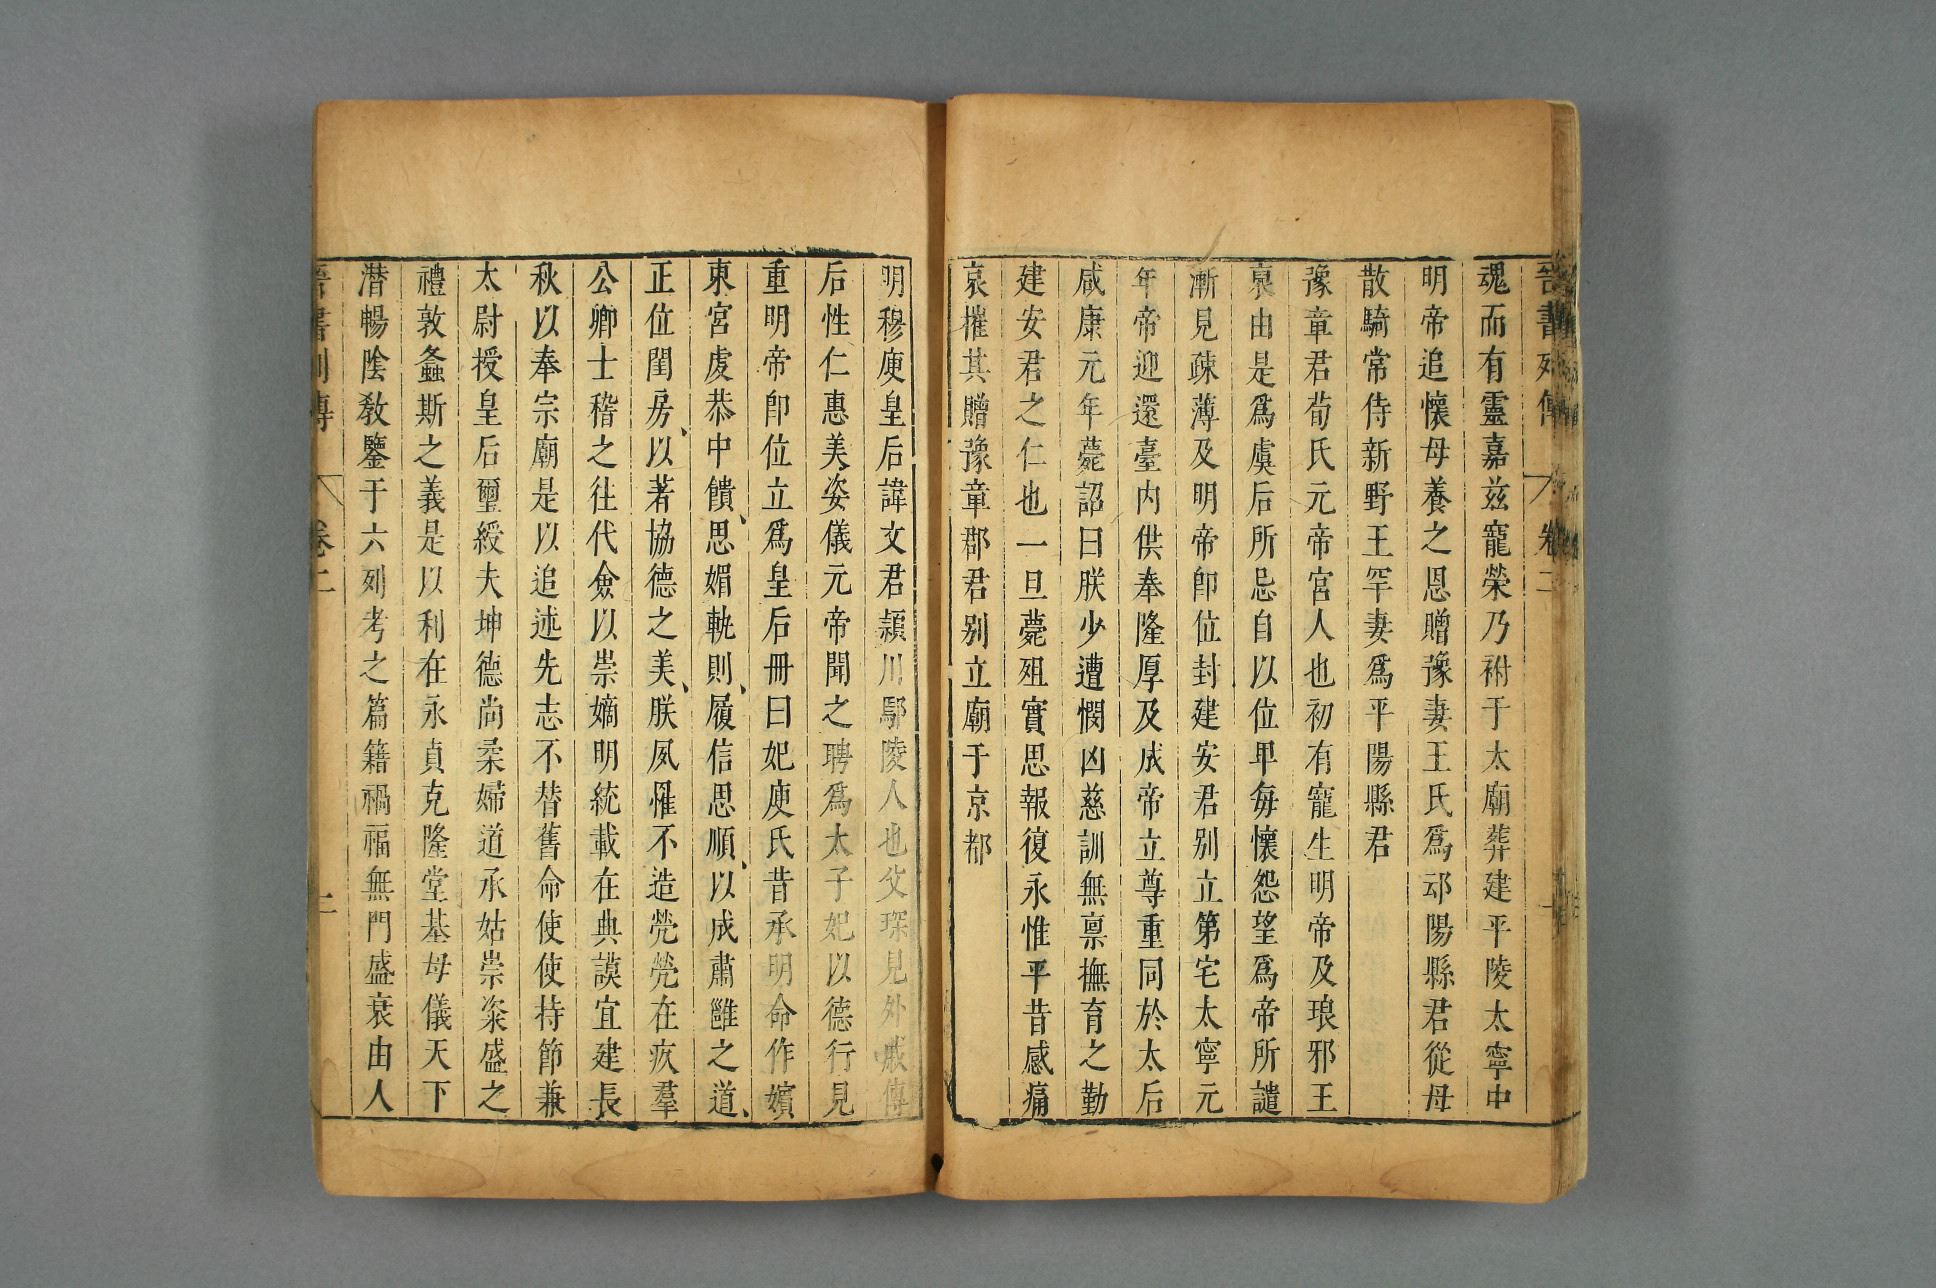 晉書列傳 卷二
魂而有靈嘉兹寵榮乃祔于太廟葬建平陵太寧中
明帝追懷母養之恩贈豫妻王氏爲邧陽縣君從母
散騎常侍新野王罕妻爲平陽縣君
豫章君荀氏元帝宮人也初有寵生明帝及琅邪王
裒由是爲虞后所忌自以位卑每懷怨望爲帝所譴
漸見疎薄及明帝卽位封建安君别立第宅太寧元
年帝迎還臺内供奉隆厚及成帝立尊重同於太后
咸康元年薨詔曰朕少遭憫凶慈訓無禀撫育之勤
建安君之仁也一旦薨殂實思報復永惟平昔感痛
哀摧其贈豫章郡君别立廟于京都
明穆庾皇后諱文君潁川鄢陵人也父琛見外戚傳
后性仁惠美姿儀元帝聞之聘爲太子妃以德行見
重明帝卽位立爲皇后冊曰妃庾氏昔承明命作嬪
東宮虔恭中饋、思媚軌則、履信思順、以成肅雝之道、
正位閨房、以著協德之美、朕夙罹不造煢煢在疚羣
公卿士稽之往代僉以崇嫡明統載在典謨宜建長
秋以奉宗廟是以追述先志不替舊命使使持節兼
太尉授皇后璽綬夫坤德尚柔婦道承姑崇粢盛之
禮敦螽斯之義是以利在永貞克隆堂基母儀天下
潛暢陰敎鑒于六列考之篇籍禍福無門盛衰由人
晉書列傳 卷二